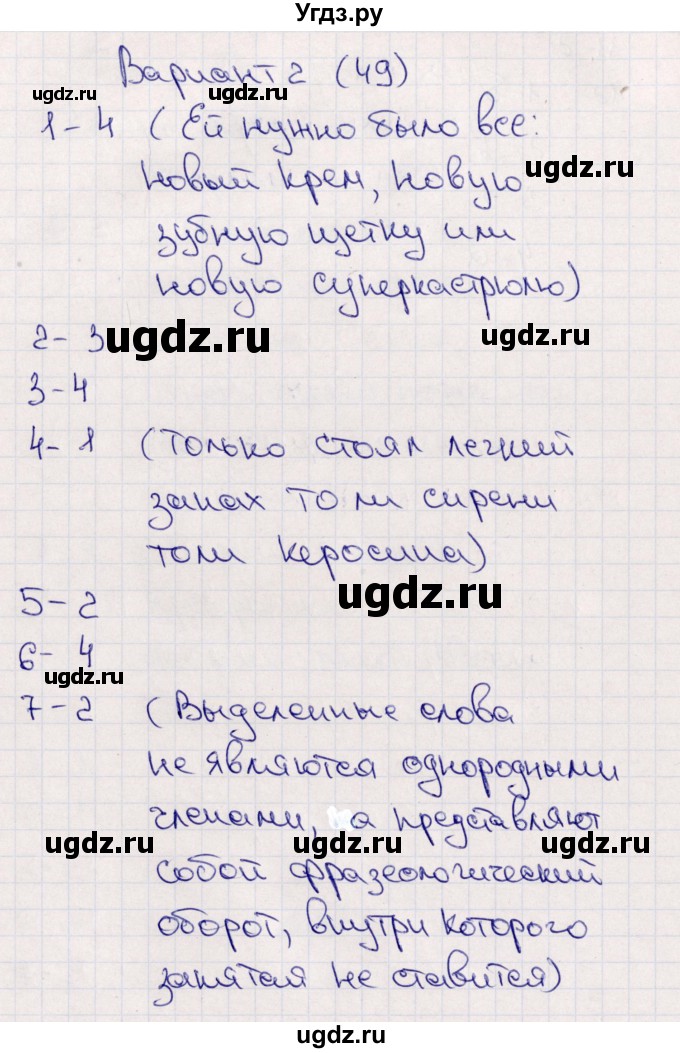 Угдз.ру
Вариант 2 (49)
ugdz.ru ugdz.ru
1-4 (Ей нужно было все:
ugdz.ru
новый крем, новую
зубную щетку или
новую суперкастрюлю)
2-3
ugdz.ru ugdz.ru
3-4
4-1 (только стоял легкий
ugdz.ru
запах то ли сирени
то ли керосина)
5-2
ugdz.ru
6-4
ugdz.ru
7-2 (Выделенные слова
не являются однородными
членами, а представляют
ugdz.ru ugdz.ru
собой фразеологический
оборот, внутри которого
запятая не ставится)
ugdz.ru